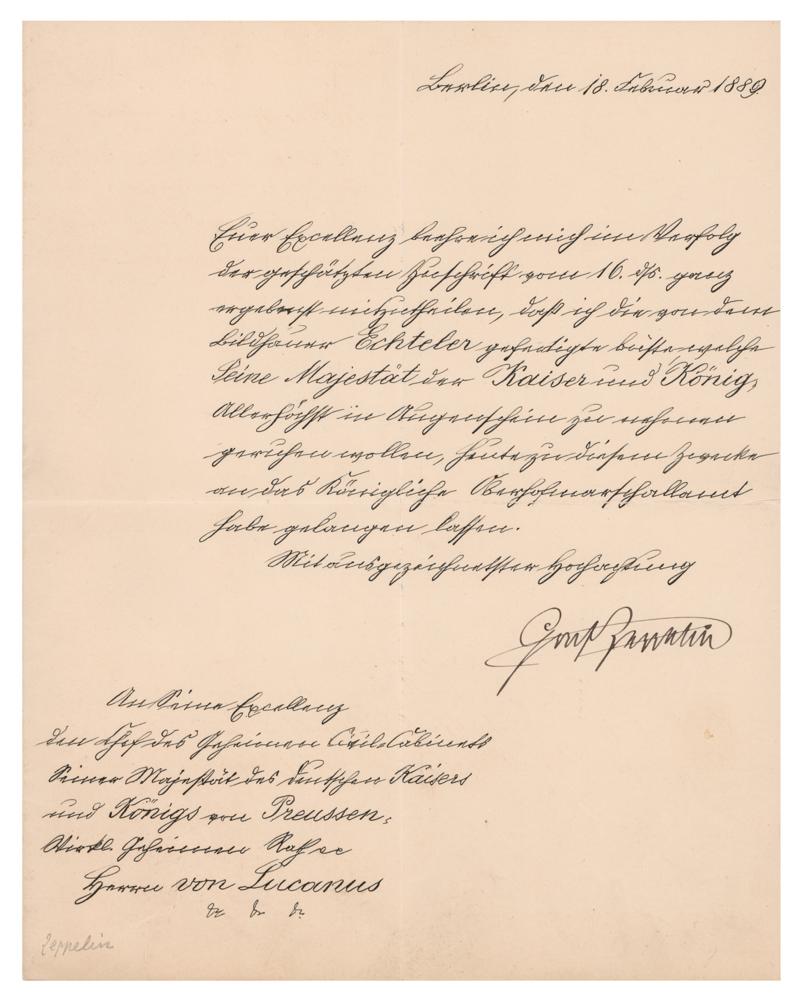 Berlin, den 18. Februar 1889.
Euer Excellenz beehre ich mich im Verfolg
der geschätzten Zuschrift vom 16. ds. ganz
ergebenst mitzutheilen, daß ich die von dem
Bildhauer Echteler gefertigte Büste, welche
Seine Majestät der Kaiser und König,
Allerhöchst in Augenschein zu nehmen
geruhen wollen, heute zu diesem Zwecke
an das Königliche Oberhofmarschallamt
habe gelangen lassen.
Mit ausgezeichnetster Hochachtung
Graf Zeppelin
An Seine Excellenz
den Chef des Geheimen Civil-Cabinets
Seiner Majestät des deutschen Kaisers
und Königs von Preussen,
Wirkl. Geheimen Rath
Herrn von Lucanus
Zeppelin